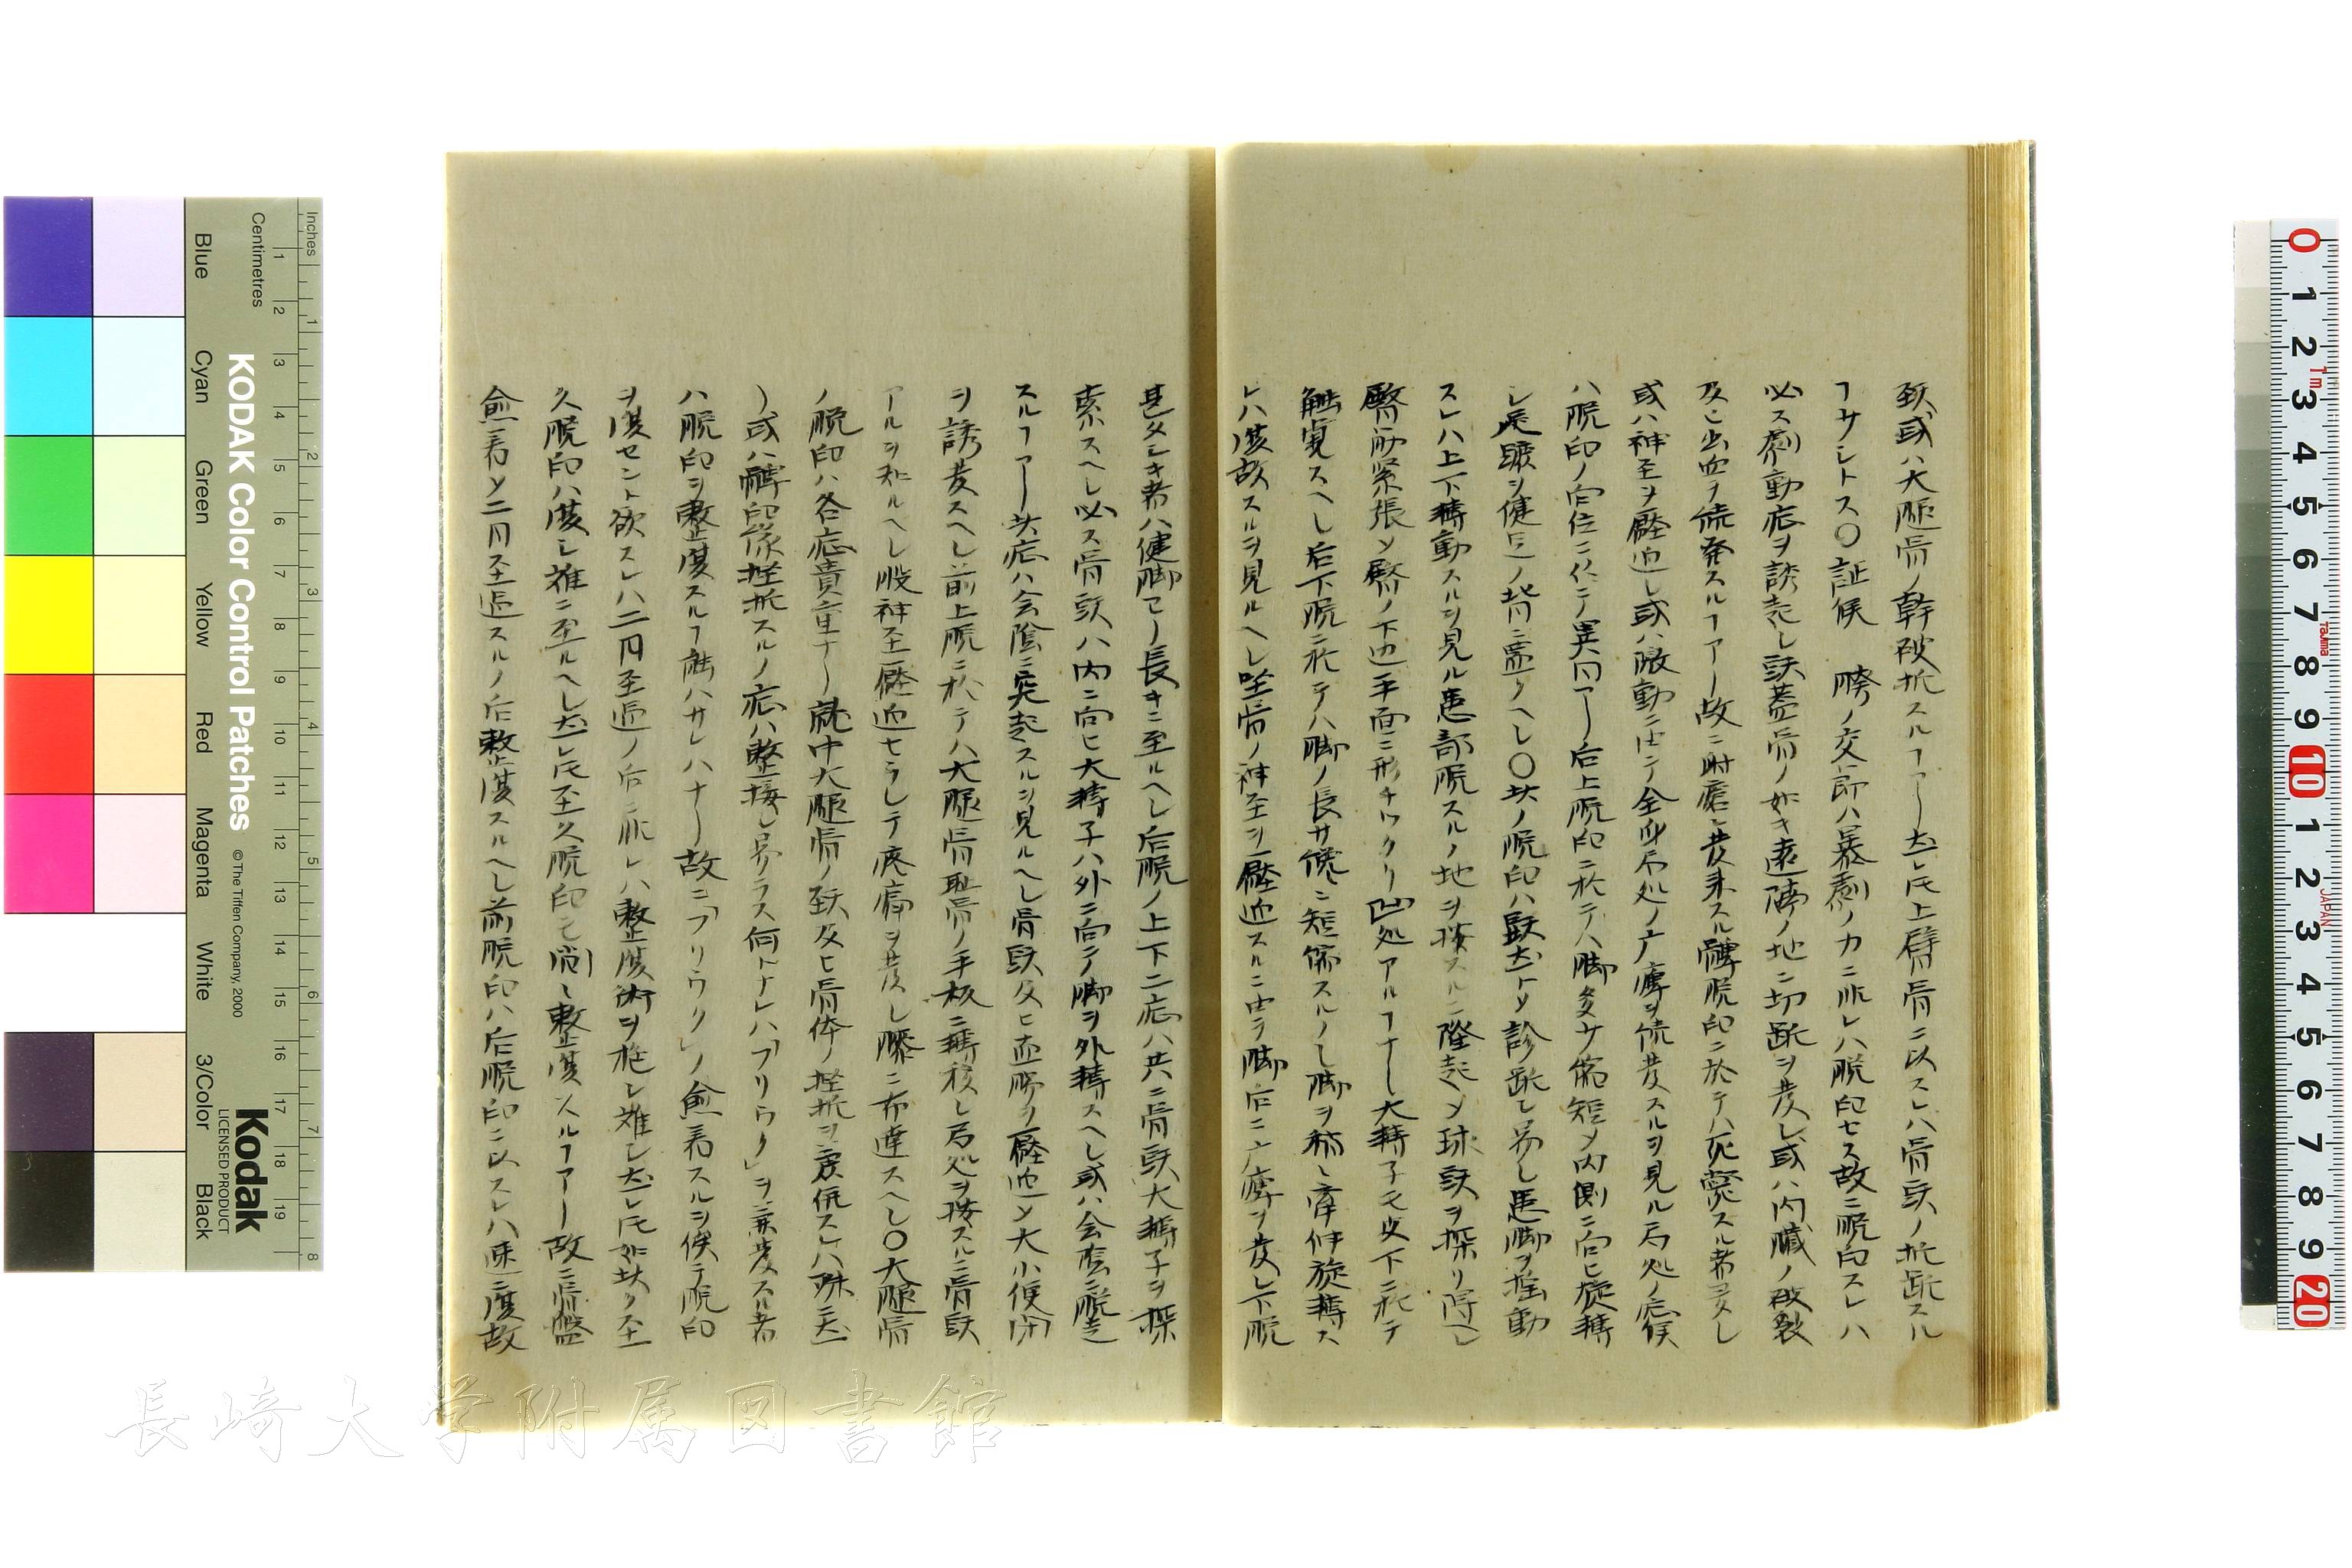 頚或ハ大腿骨ノ幹破折スルヿアリ尤𪜈上膊骨ニ以スレハ骨頭ノ折断スル
ヿサシトス〇証候 胯ノ交節ハ暴劇ノ力ニ非レハ脱臼セス故ニ脱臼スレハ
必ス劇動症ヲ誘起シ頭蓋骨ノ如キ遠隔ノ地ニ切断ヲ発シ或ハ内臓ノ破裂
及ヒ出血ヲ続発スルヿアリ故ニ
或ハ神至ヲ圧迫シ或ハ激動ニ由テ全身局処ノ麻痺ヲ続発スルヲ見ル局処ノ症候
ハ脱臼ノ向位ニ仍テ異同アリ后上脱臼ニ於テハ脚多サ短縮メ内側ニ向ヒ旋轉
シ足蹠ヲ健足ノ背ニ置クヘシ〇此ノ脱臼ハ診断シ易シ患脚ヲ揺動
スレハ上下轉動スルヲ見ル患部脱スルノ地ヲ按スルニ隆起メ球頭ヲ探リ得ヘシ
臀筋緊張メ臀ノ下辺平面ニ形チツクリ凹処アルヿナシ大轉子モ皮下ニ於テ
触覚スヘシ后下脱ニ於テハ脚ノ長サ僅ニ短縮スルノミ脚ヲ
レハ復故スルヲ見ルヘシ坐骨ノ神至ヲ圧迫スルニ由テ脚后ニ麻痺ヲ発シ下脱
甚タシキ者ハ健脚ヨリ長キニ至ルヘシ后脱ノ上下二症ハ共ニ骨頭大轉子ヲ探
索スヘシ必ス骨頭ハ内ニ向ヒ大轉子ハ外ニ向テ脚ヲ外轉スヘシ或ハ会陰ニ脱走
スルヿアリ此症ハ会陰ニ突起スルヲ見ルヘシ骨頭及ヒ直腸ヲ圧迫メ大小便閉
ヲ誘発スヘシ前上脱ニ於テハ大腿骨恥骨ノ平板ニ轉移シ局処ヲ按スルニ骨頭
アルヲ知ルヘシ股神至圧迫セラレテ疼痛ヲ発シ膝ニ布達スヘシ〇大腿骨
ノ脱臼ハ各症貴重ナリ就中大腿骨ノ頚及ヒ骨体ノ挫折ヲ兼併スレハ殊ニ尤
リ或ハ髀臼縁挫折スルノ症ハ整接シ易ラス何トナレハ「フリウク」ヲ兼発スル者
ハ脱臼ヲ整復スルヿ能ハサレハナリ故ニ「フリウク」ノ愈着スルヲ俟テ脱臼
ヲ復セント欲スレハ二月至過ノ后ニ非レハ整復術ヲ施シ難シ尤𪜈如此ク至
久脱臼ハ復シ難ニ至ルヘシ尤𪜈至久脱臼モ間々整復スルヿアリ故ニ骨盤
愈着メ二月至過スルノ后整復スルヘシ前脱臼ハ后脱臼ニ以スレハ速ニ復故
長崎大学附属図書館
KODAK Color Control Patches
©The Tiffen Company, 2000
Kodak
LICENSED PRODUCT
Inches
Centimetres
Blue
Cyan
Green
Yellow
Red
Magenta
White
3/Color
Black